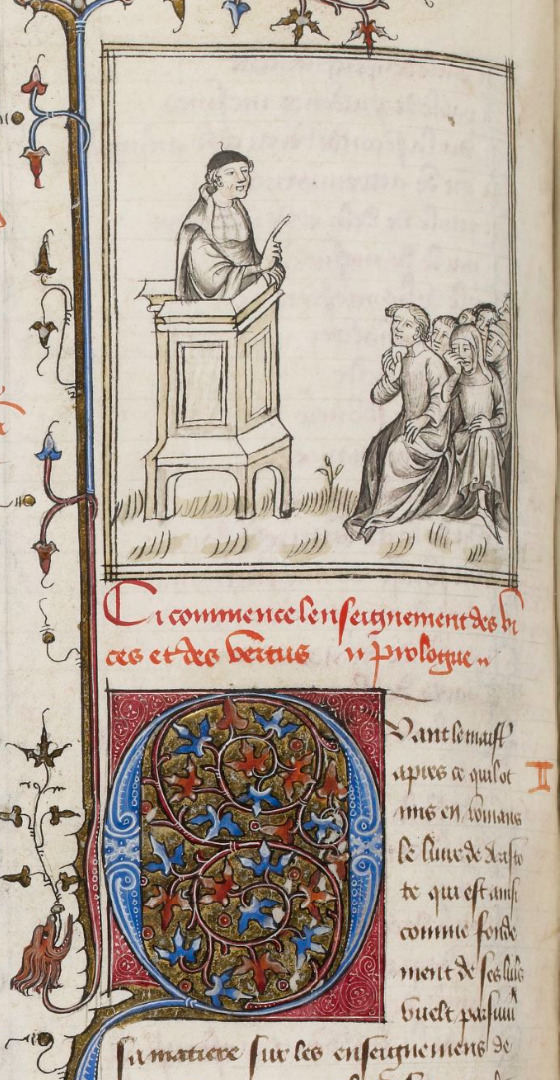 Ci commence lenseignement des vi
ces et des vertus prologue
Quant le maistre
apres ce quil ot
mis en romans
le liure de Aristo
te qui est ausi
comme fonde
ment de ses liurs
vuelt parsuiu
sa matiere sur les enseignemens de
II